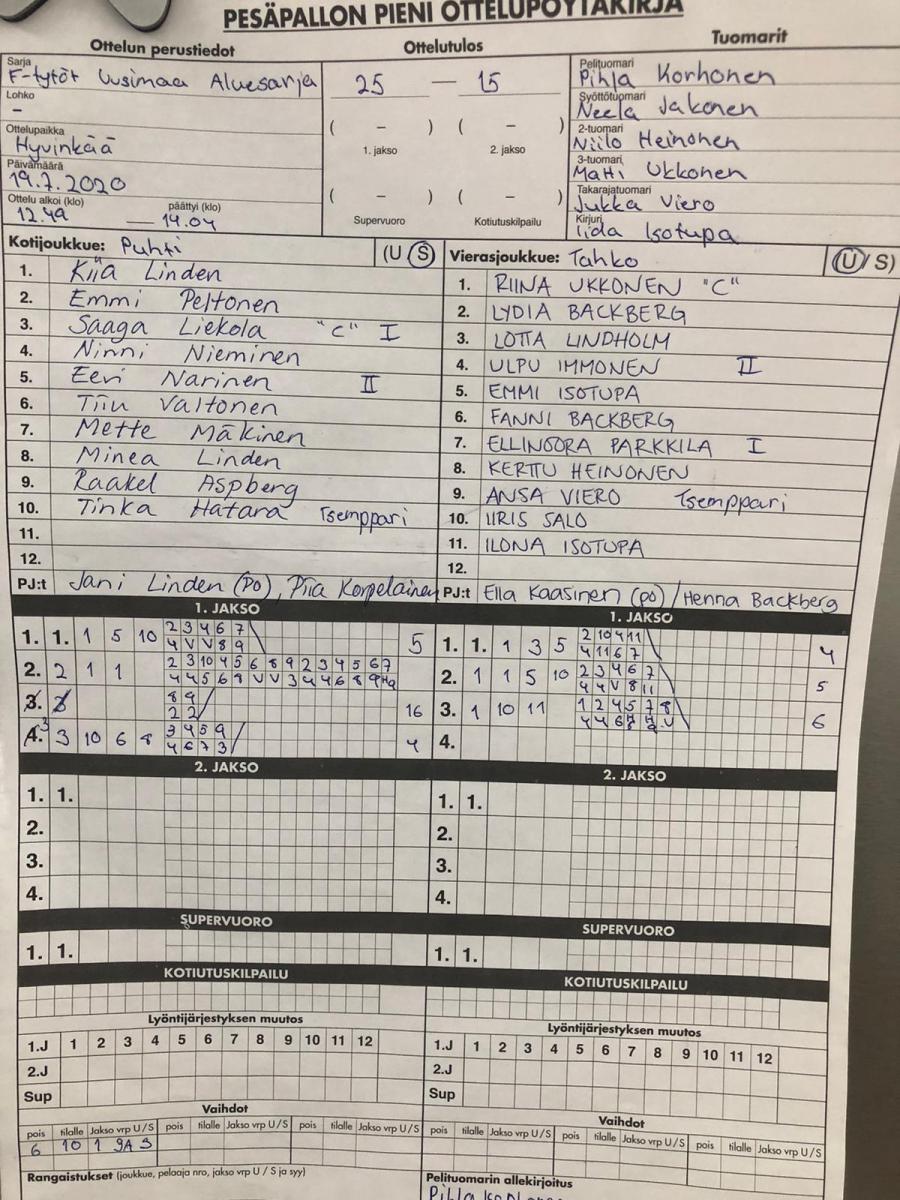 PESÄPALLON PIENI OTTELUPÖYTÄKIRJA
Ottelun perustiedot
Sarja
F-tytöt Uusimaa Aluesarja
Lohko
-
Ottelupaikka
Hyvinkää
Päivämäärä
19.7.2020
Ottelu alkoi (klo) päättyi (klo)
12.49 — 14.04
Ottelutulos
25 — 15
( – ) ( – )
1. jakso 2. jakso
( – ) ( – )
Supervuoro Kotiutuskilpailu
Tuomarit
Pelituomari
Pihla Korhonen
Syöttötuomari
Neela Jakonen
2-tuomari
Niilo Heinonen
3-tuomari
Matti Ukkonen
Takarajatuomari
Jukka Viero
Kirjuri
Iida Isotupa
Kotijoukkue: Puhti (U S)
1. Kiia Linden
2. Emmi Peltonen
3. Saaga Liekola "C" I
4. Ninni Nieminen
5. Eevi Narinen II
6. Tiiu Valtonen
7. Mette Mäkinen
8. Minea Linden
9. Raakel Aspberg
10. Tinka Hatara Tsemppari
11.
12.
PJ:t Jani Linden (PO), Piia Korpelainen
Vierasjoukkue: Tahko (U/S)
1. RIINA UKKONEN "C"
2. LYDIA BACKBERG
3. LOTTA LINDHOLM
4. ULPU IMMONEN II
5. EMMI ISOTUPA
6. FANNI BACKBERG
7. ELLINOORA PARKKILA I
8. KERTTU HEINONEN
9. ANSA VIERO Tsemppari
10. IIRIS SALO
11. ILONA ISOTUPA
12.
PJ:t Ella Kaasinen (po) / Henna Backberg
1. JAKSO
1. 1. 1 5 10 2 3 4 6 7 5
4 V V 8 9
2. 2 1 1 2 3 10 4 5 6 8 9 2 3 4 5 6 7
4 4 5 6 8 V V 3 4 4 6 8 9
3. 8 9 16
2 2
4. 3 3 10 6 8 3 4 5 9 4
4 6 7 3
2. JAKSO
1. 1.
2.
3.
4.
SUPERVUORO
1. 1.
KOTIUTUSKILPAILU
Lyöntijärjestyksen muutos
1.J 1 2 3 4 5 6 7 8 9 10 11 12
2.J
Sup
Vaihdot
pois tilalle Jakso vrp U/S pois tilalle Jakso vrp U/S pois tilalle Jakso vrp U/S
6 10 1 3A S
Rangaistukset (joukkue, pelaaja nro, jakso vrp U / S ja syy)
1. JAKSO
1. 1. 1 3 5 2 10 4 11 4
4 11 6 7
2. 1 1 5 10 2 3 4 6 7 5
4 4 V 8 11
3. 1 10 11 1 2 4 5 7 8 6
4 4 6
4.
2. JAKSO
1. 1.
2.
3.
4.
SUPERVUORO
1. 1.
KOTIUTUSKILPAILU
Lyöntijärjestyksen muutos
1.J 1 2 3 4 5 6 7 8 9 10 11 12
2.J
Sup
Vaihdot
pois tilalle Jakso vrp U/S pois tilalle Jakso vrp U/S pois tilalle Jakso vrp U/S
Pelituomarin allekirjoitus